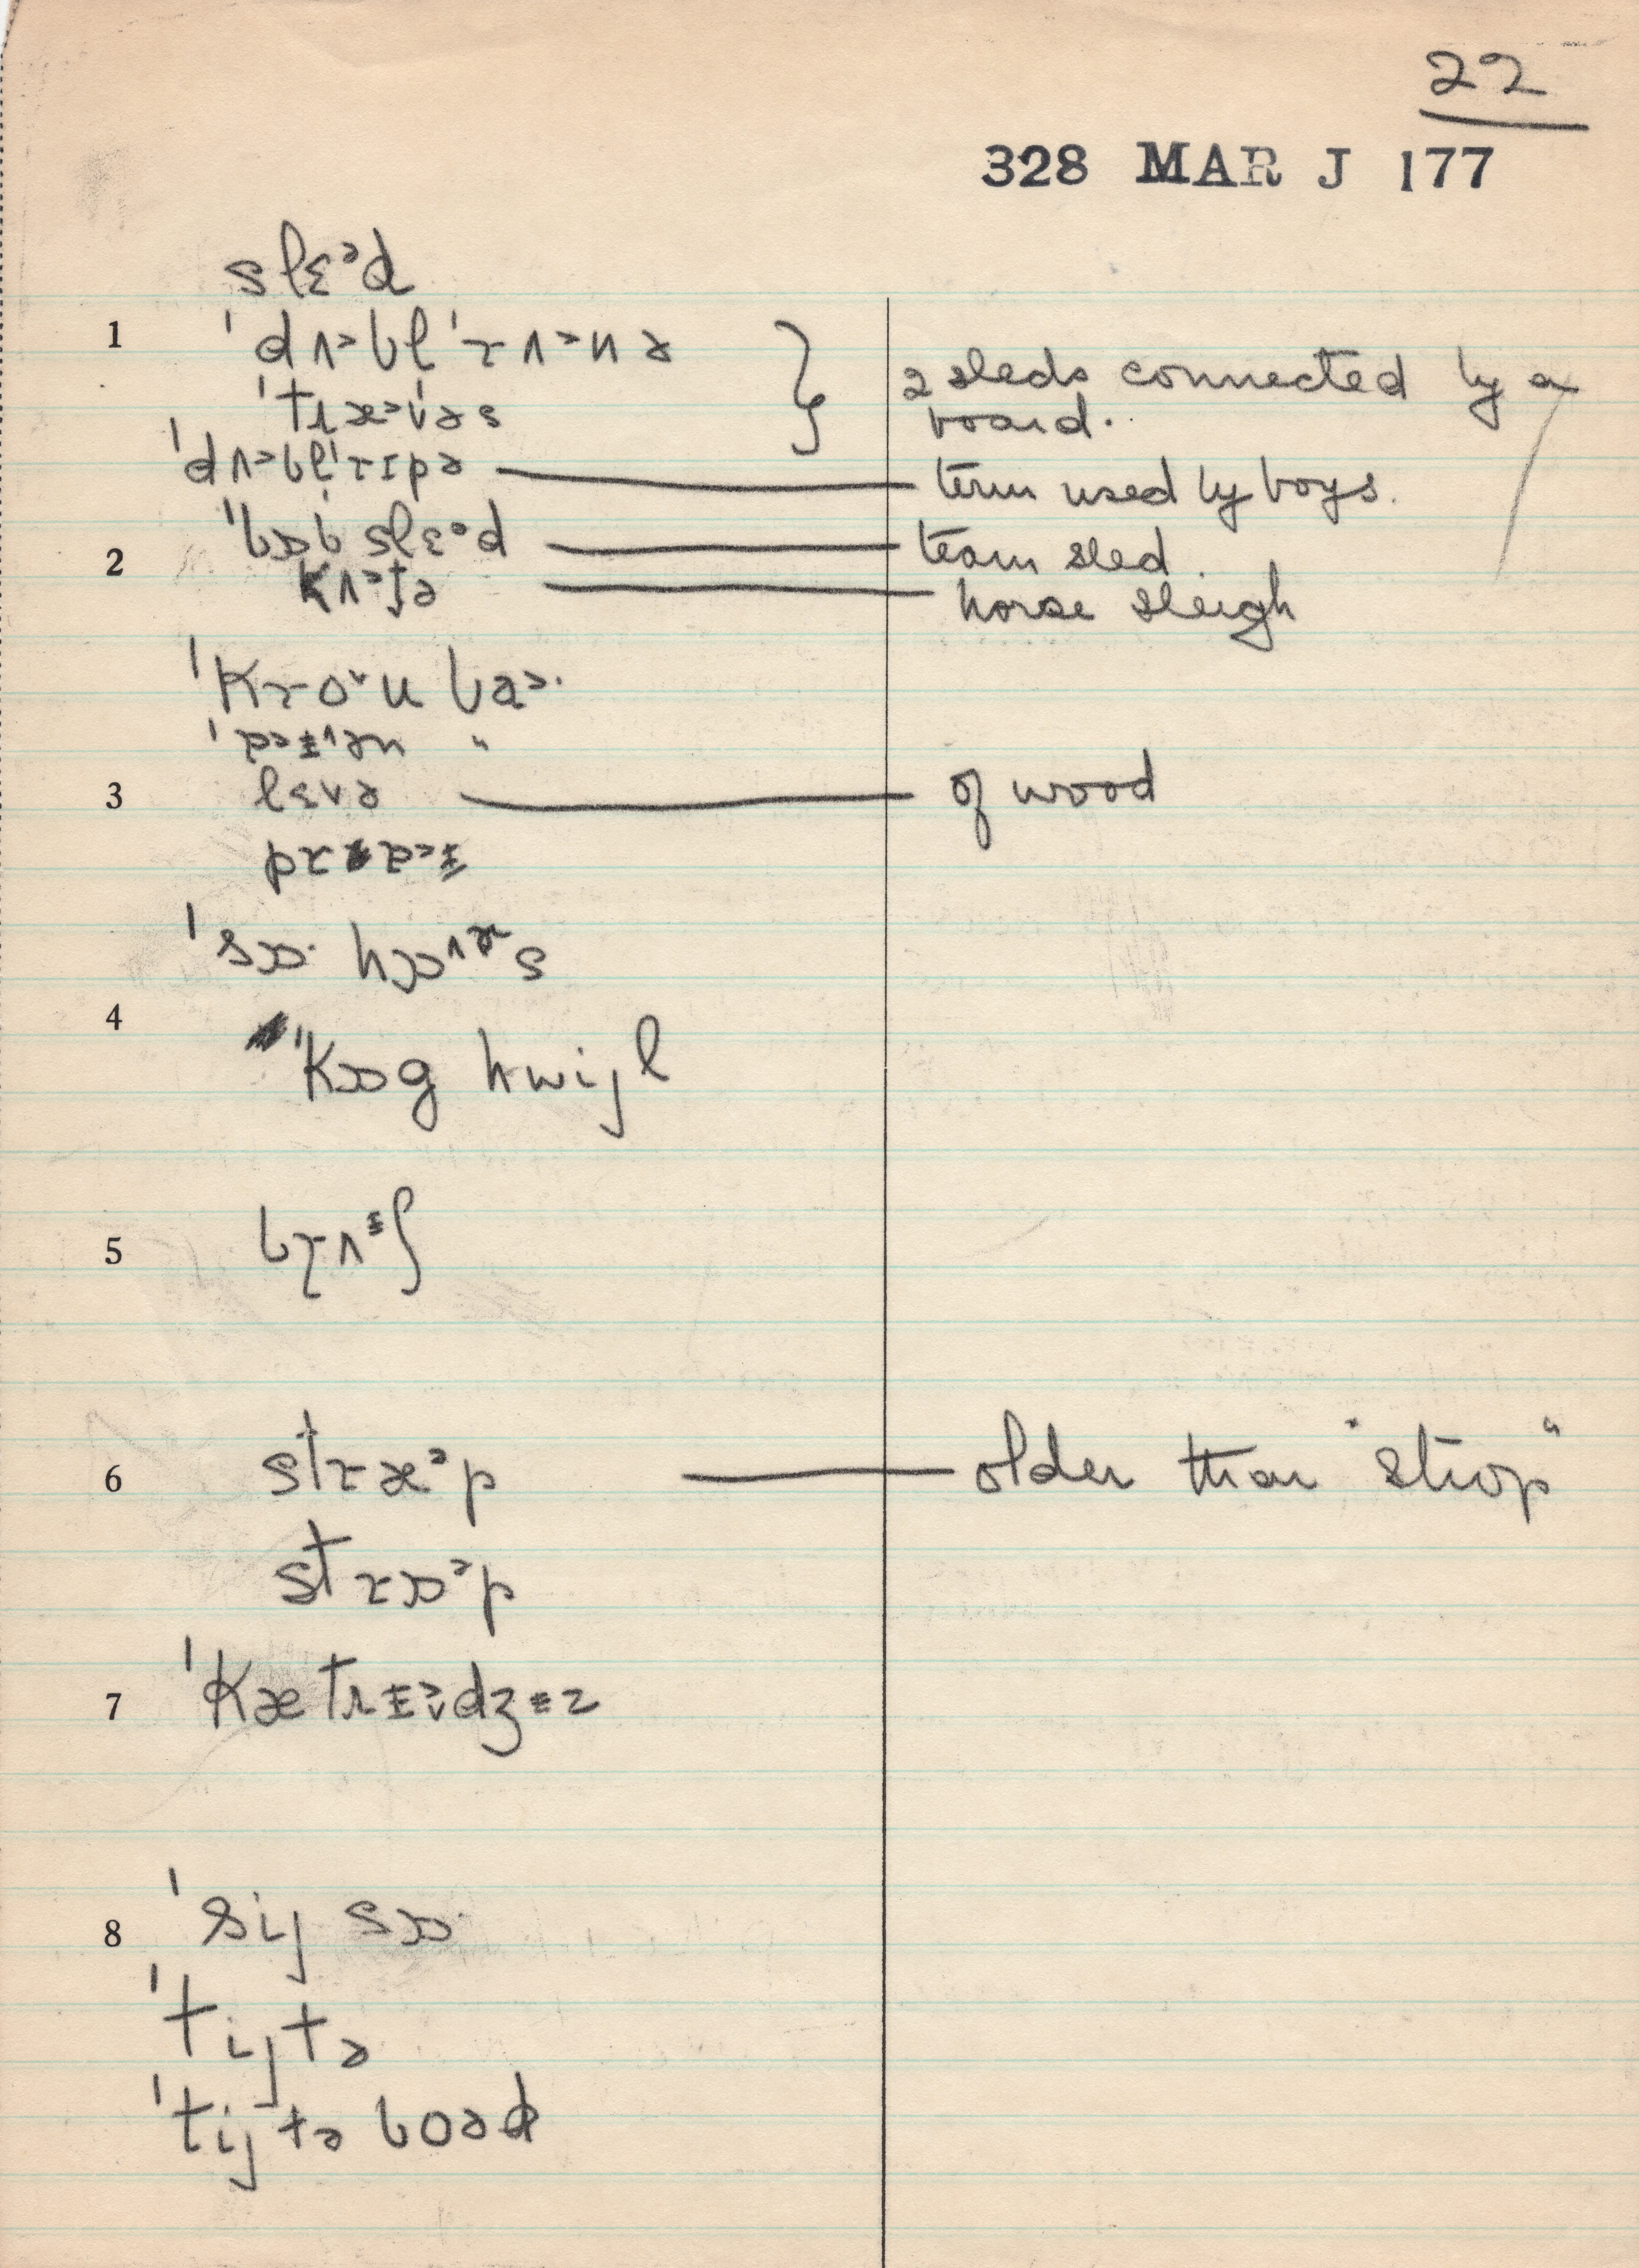 22
328 MAR J 177
slɛᵊd
1 ˈdʌ˃bl ˈrʌ˃nə } 2 sleds connected by a
ˈtɹæ˃vəs board.
ˈdʌ˃blˈrɪpə — term used by boys.
ˈbɒb slɛᵊd — team sled.
2 kʌ˃tə — horse sleigh
ˈkro˅u ba˃·
ˈpɹ̩ən "
3 lɛvə — of wood
ˈsɒ· hɒs
4 ˈkɒg hwijl
5 brʌᵻʃ
6 stræᵊp — older than "strop"
strɒᵊp
7 ˈkætrᵻdʒᵻz
8 ˈsij sɒ·
ˈtijtə
ˈtijtə boəd